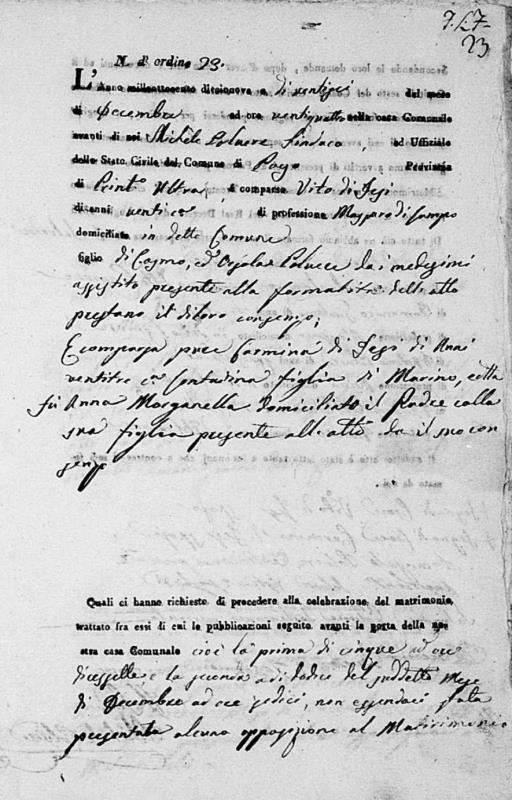 23
N. d'ordine 23.
L'Anno milleottocento diecinove a di ventisei del mese
di Decembre ad ore ventiquattro nella casa Comunale
avanti di noi Michele Polvere Sindaco ed Uffiziale
dello Stato Civile del Comune di Pago Provincia
di Princ.to Ultra, è comparso Vito di Jesi
di anni venti di professione Massaro di Campo
domiciliato in detto Comune
figlio di Cosmo, ed Orsola da i medesimi
assistito presente alla formativa dell atto
prestano il di loro consenso;
E comparsa pure Carmina di Jesi di Anni
ventitre Contadina figlia di Marino, e della
fù Anna Morganella domiciliato il Padre colla
sua figlia presente all atto da il suo con
senso
Quali ci hanno richiesto di procedere alla celebrazione del matrimonio
trattato fra essi di cui le pubblicazioni seguite avanti la porta della no
stra casa Comunale cioè la prima di cinque ad ore
diessette e la seconda a di dodice del suddetto Mese
di Decembre ad ore sedici, non essendoci stata
presentata alcuna opposizione al Matrimonio